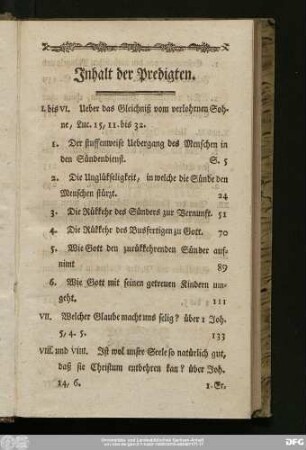 Inhalt der Predigten.
I. bis VI. Ueber das Gleichniß vom verlohrnen Soh-
ne, Luc. 15, 11. bis 32.
1. Der stuffenweise Uebergang des Menschen in
den Sündendienst. S. 5
2. Die Unglükseligkeit, in welche die Sünde den
Menschen stürzt. 24
3. Die Rükkehr des Sünders zur Vernunft. 51
4. Die Rükkehr des Busfertigen zu Gott. 70
5. Wie Gott den zurükkehrenden Sünder auf-
nimt 89
6. Wie Gott mit seinen getreuen Kindern um-
geht. 111
VII. Welcher Glaube macht uns selig? über 1 Joh.
5, 4. 5. 133
VIII. und VIIII. Ist wol unsre Seele so natürlich gut,
daß sie Christum entbehren kan? über Joh.
14, 6. 1. Er.